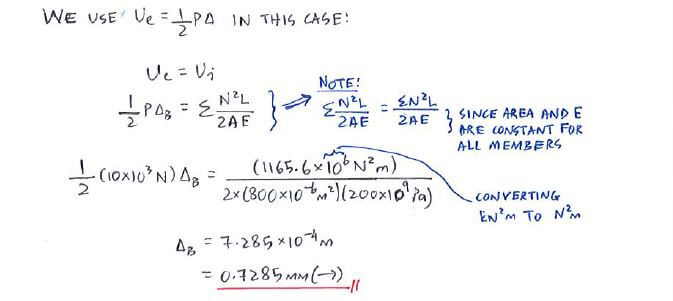 WE USE' Ue = 1/2 PΔ IN THIS CASE!
Ue = Ui
1/2 PΔB = Σ N²L/2AE
NOTE!
Σ N²L/2AE = ΣN²L/2AE
SINCE AREA AND E
ARE CONSTANT FOR
ALL MEMBERS
1/2 (10×10³ N) ΔB = (1165.6×10⁶ N²m) / 2×(800×10⁻⁶ m²)(200×10⁹ Pa)
CONVERTING
EN²M TO N²M
ΔB = 7.285×10⁻⁴ M
= 0.7285 MM (→)